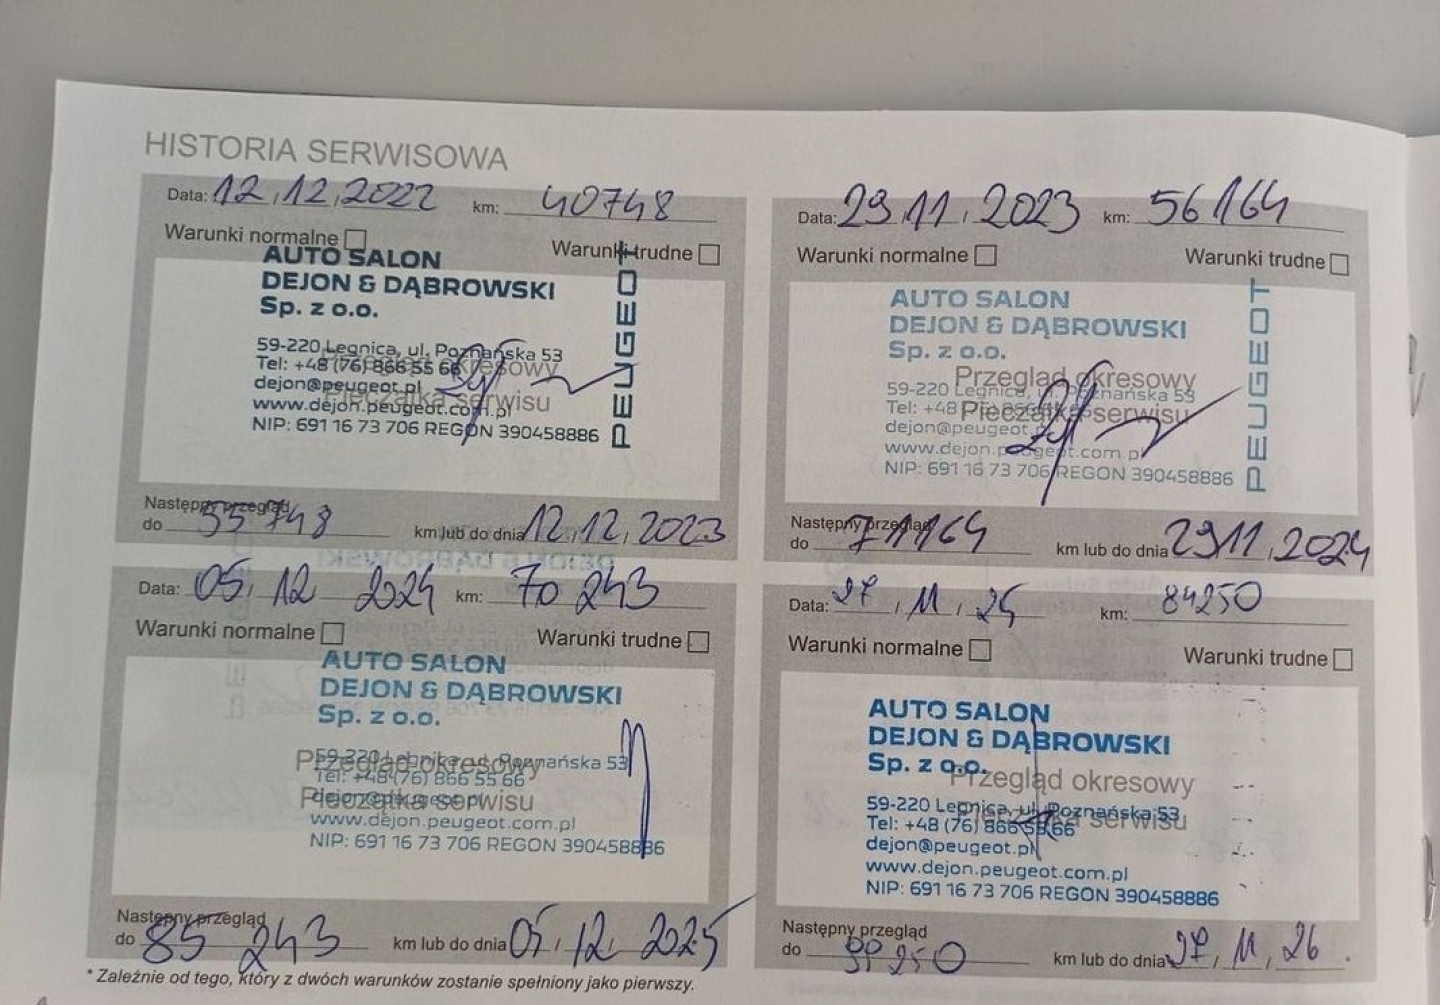 HISTORIA SERWISOWA
Data: 12.12.2022 km: 40748
Warunki normalne Warunki trudne
AUTO SALON
DEJON & DĄBROWSKI
Sp. z o.o.
PEUGEOT
59-220 Legnica, ul. Poznańska 53
Przegląd okresowy
Tel: +48 (76) 866 55 66
dejon@peugeot.pl
Pieczątka serwisu
www.dejon.peugeot.com.pl
NIP: 691 16 73 706 REGON 390458886
Następny przegląd
do 55748 km lub do dnia 12.12.2023
Data: 29.11.2023 km: 56164
Warunki normalne Warunki trudne
AUTO SALON
DEJON & DĄBROWSKI
Sp. z o.o.
PEUGEOT
Przegląd okresowy
59-220 Legnica, ul. Poznańska 53
Tel: +48 (76) 866 55 66
Pieczątka serwisu
dejon@peugeot.pl
www.dejon.peugeot.com.pl
NIP: 691 16 73 706 REGON 390458886
Następny przegląd
do 71164 km lub do dnia 29.11.2024
Data: 05.12 2024 km: 70 243
Warunki normalne Warunki trudne
AUTO SALON
DEJON & DĄBROWSKI
Sp. z o.o.
59-220 Legnica, ul. Poznańska 53
Przegląd okresowy
Tel: +48 (76) 866 55 66
dejon@peugeot.pl
Pieczątka serwisu
www.dejon.peugeot.com.pl
NIP: 691 16 73 706 REGON 390458886
Następny przegląd
do 85 243 km lub do dnia 05.12.2025
Data: 27.11.25 km: 84250
Warunki normalne Warunki trudne
AUTO SALON
DEJON & DĄBROWSKI
Sp. z o.o.
Przegląd okresowy
59-220 Legnica, ul. Poznańska 53
Pieczątka serwisu
Tel: +48 (76) 866 55 66
dejon@peugeot.pl
www.dejon.peugeot.com.pl
NIP: 691 16 73 706 REGON 390458886
Następny przegląd
do 99250 km lub do dnia 27.11.26
* Zależnie od tego, który z dwóch warunków zostanie spełniony jako pierwszy.